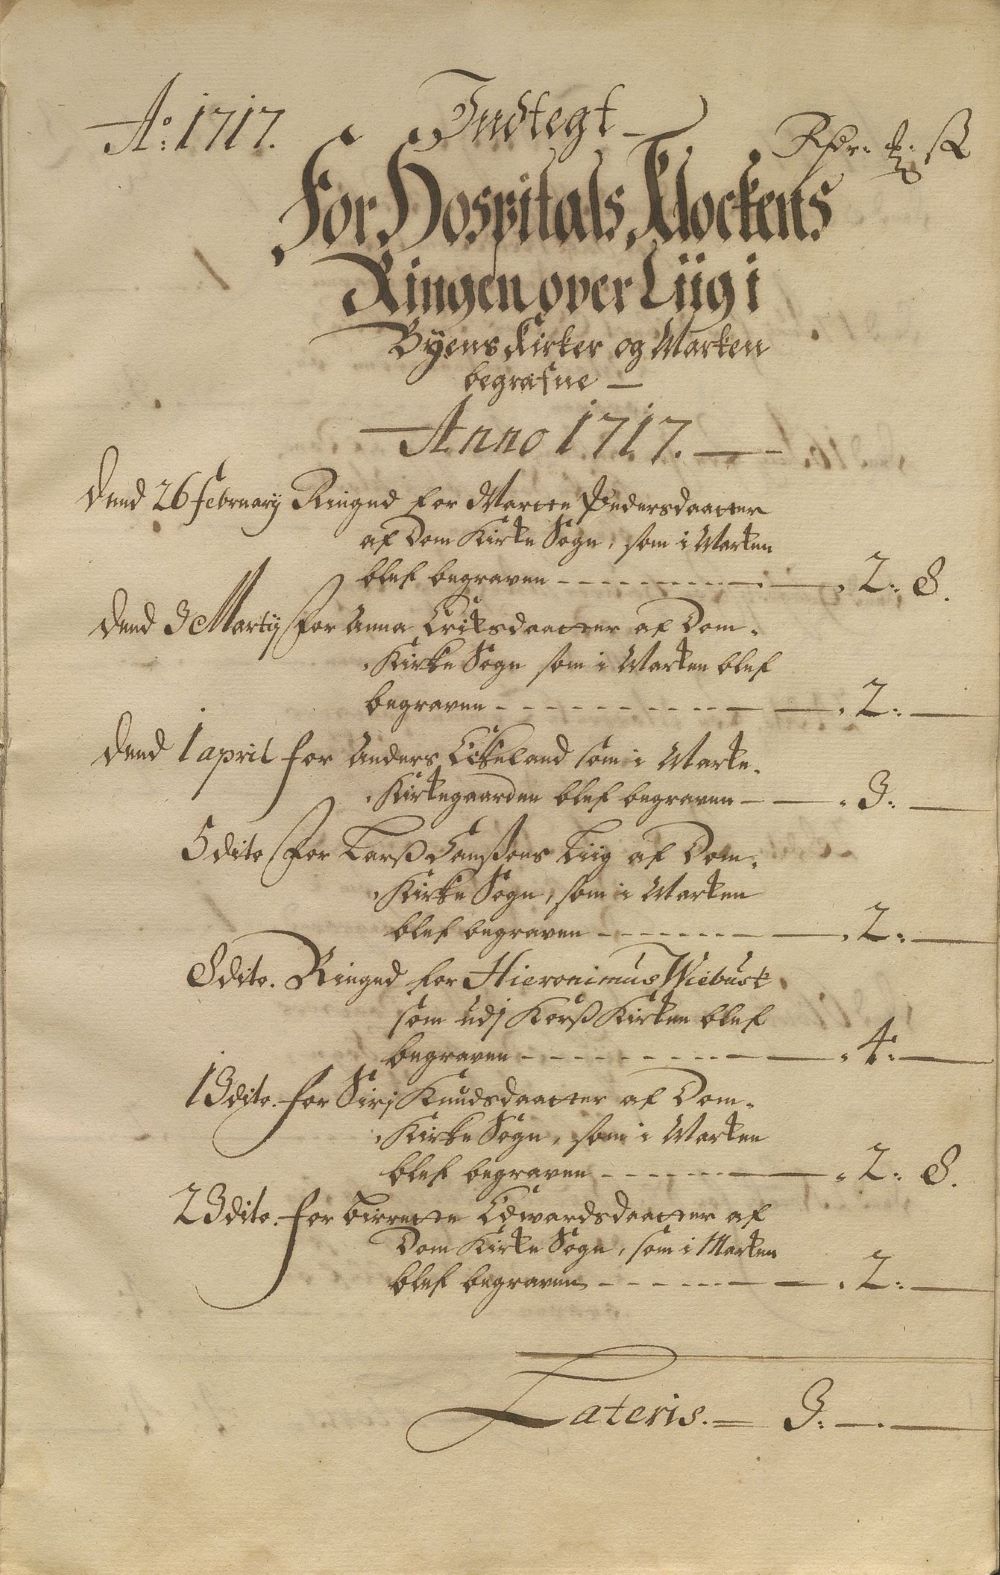 Ao: 1717. Indtegt Rdr. ß
For Hospitals Klockens
Ringen over Liig i
Byens Kirker og Marken
begrafne
Anno 1717.
Dend 26 February Ringed for Marete Pedersdaatter
af Dom Kirke Sogn, som i Marken
blef begraven - . 2: 8.
Dend 3 Marty for Anna Eriksdaatter af Dom-
Kirke Sogn som i Marken blef
begraven - . 2: -
Dend 1 april for Anders som i Marke-
Kirkegaarden blef begraven - . 3: -
5 dito for Larß Hanßens Liig af Dom-
Kirke Sogn, som i Marken
blef begraven - . 2: -
8 dito. Ringed for Hieronimus Wiebust
som udj Korß Kirken blef
begraven - . 4: -
13 dito. for Sirj Knudsdaatter af Dom-
Kirke Sogn, som i Marken
blef begraven - . 2: 8.
23 dito. for Birrette Edwardsdaatter af
Dom Kirke Sogn, som i Marken
blef begraven - . 2: -
Lateris. = 3: - . -